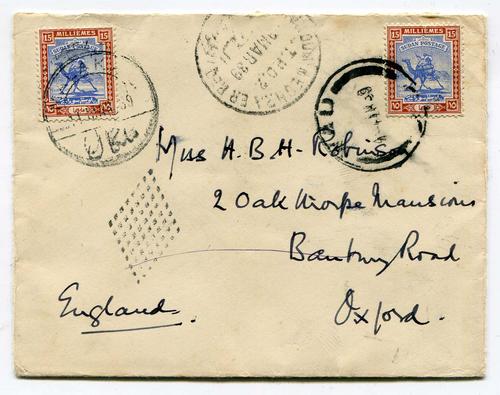 15 MILLIEMES 15
SUDAN POSTAGE
15 15
15 MILLIEMES 15
SUDAN POSTAGE
15 15
T.P.O. 2
MAR 39
Mrs H. B. H. Robinson
2 Oakthorpe Mansions
Banbury Road
Oxford.
England.